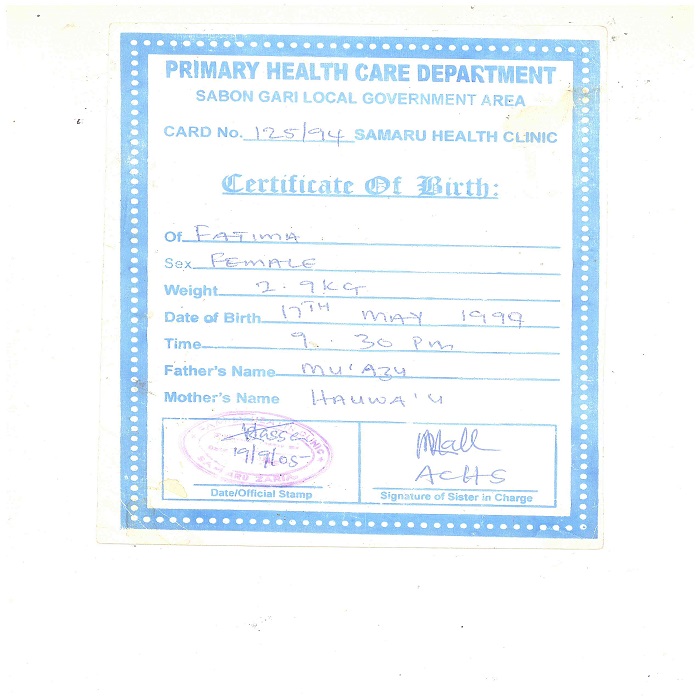 PRIMARY HEALTH CARE DEPARTMENT
SABON GARI LOCAL GOVERNMENT AREA
CARD No. 125/94 SAMARU HEALTH CLINIC
Certificate Of Birth:
Of FATIMA
Sex FEMALE
Weight 2.9KG
Date of Birth 17TH MAY 1999
Time 9.30 PM
Father's Name MU'AZU
Mother's Name HAUWA'U
19/9/05
SAMARU ZARIA
Date/Official Stamp
ACHS
Signature of Sister in Charge